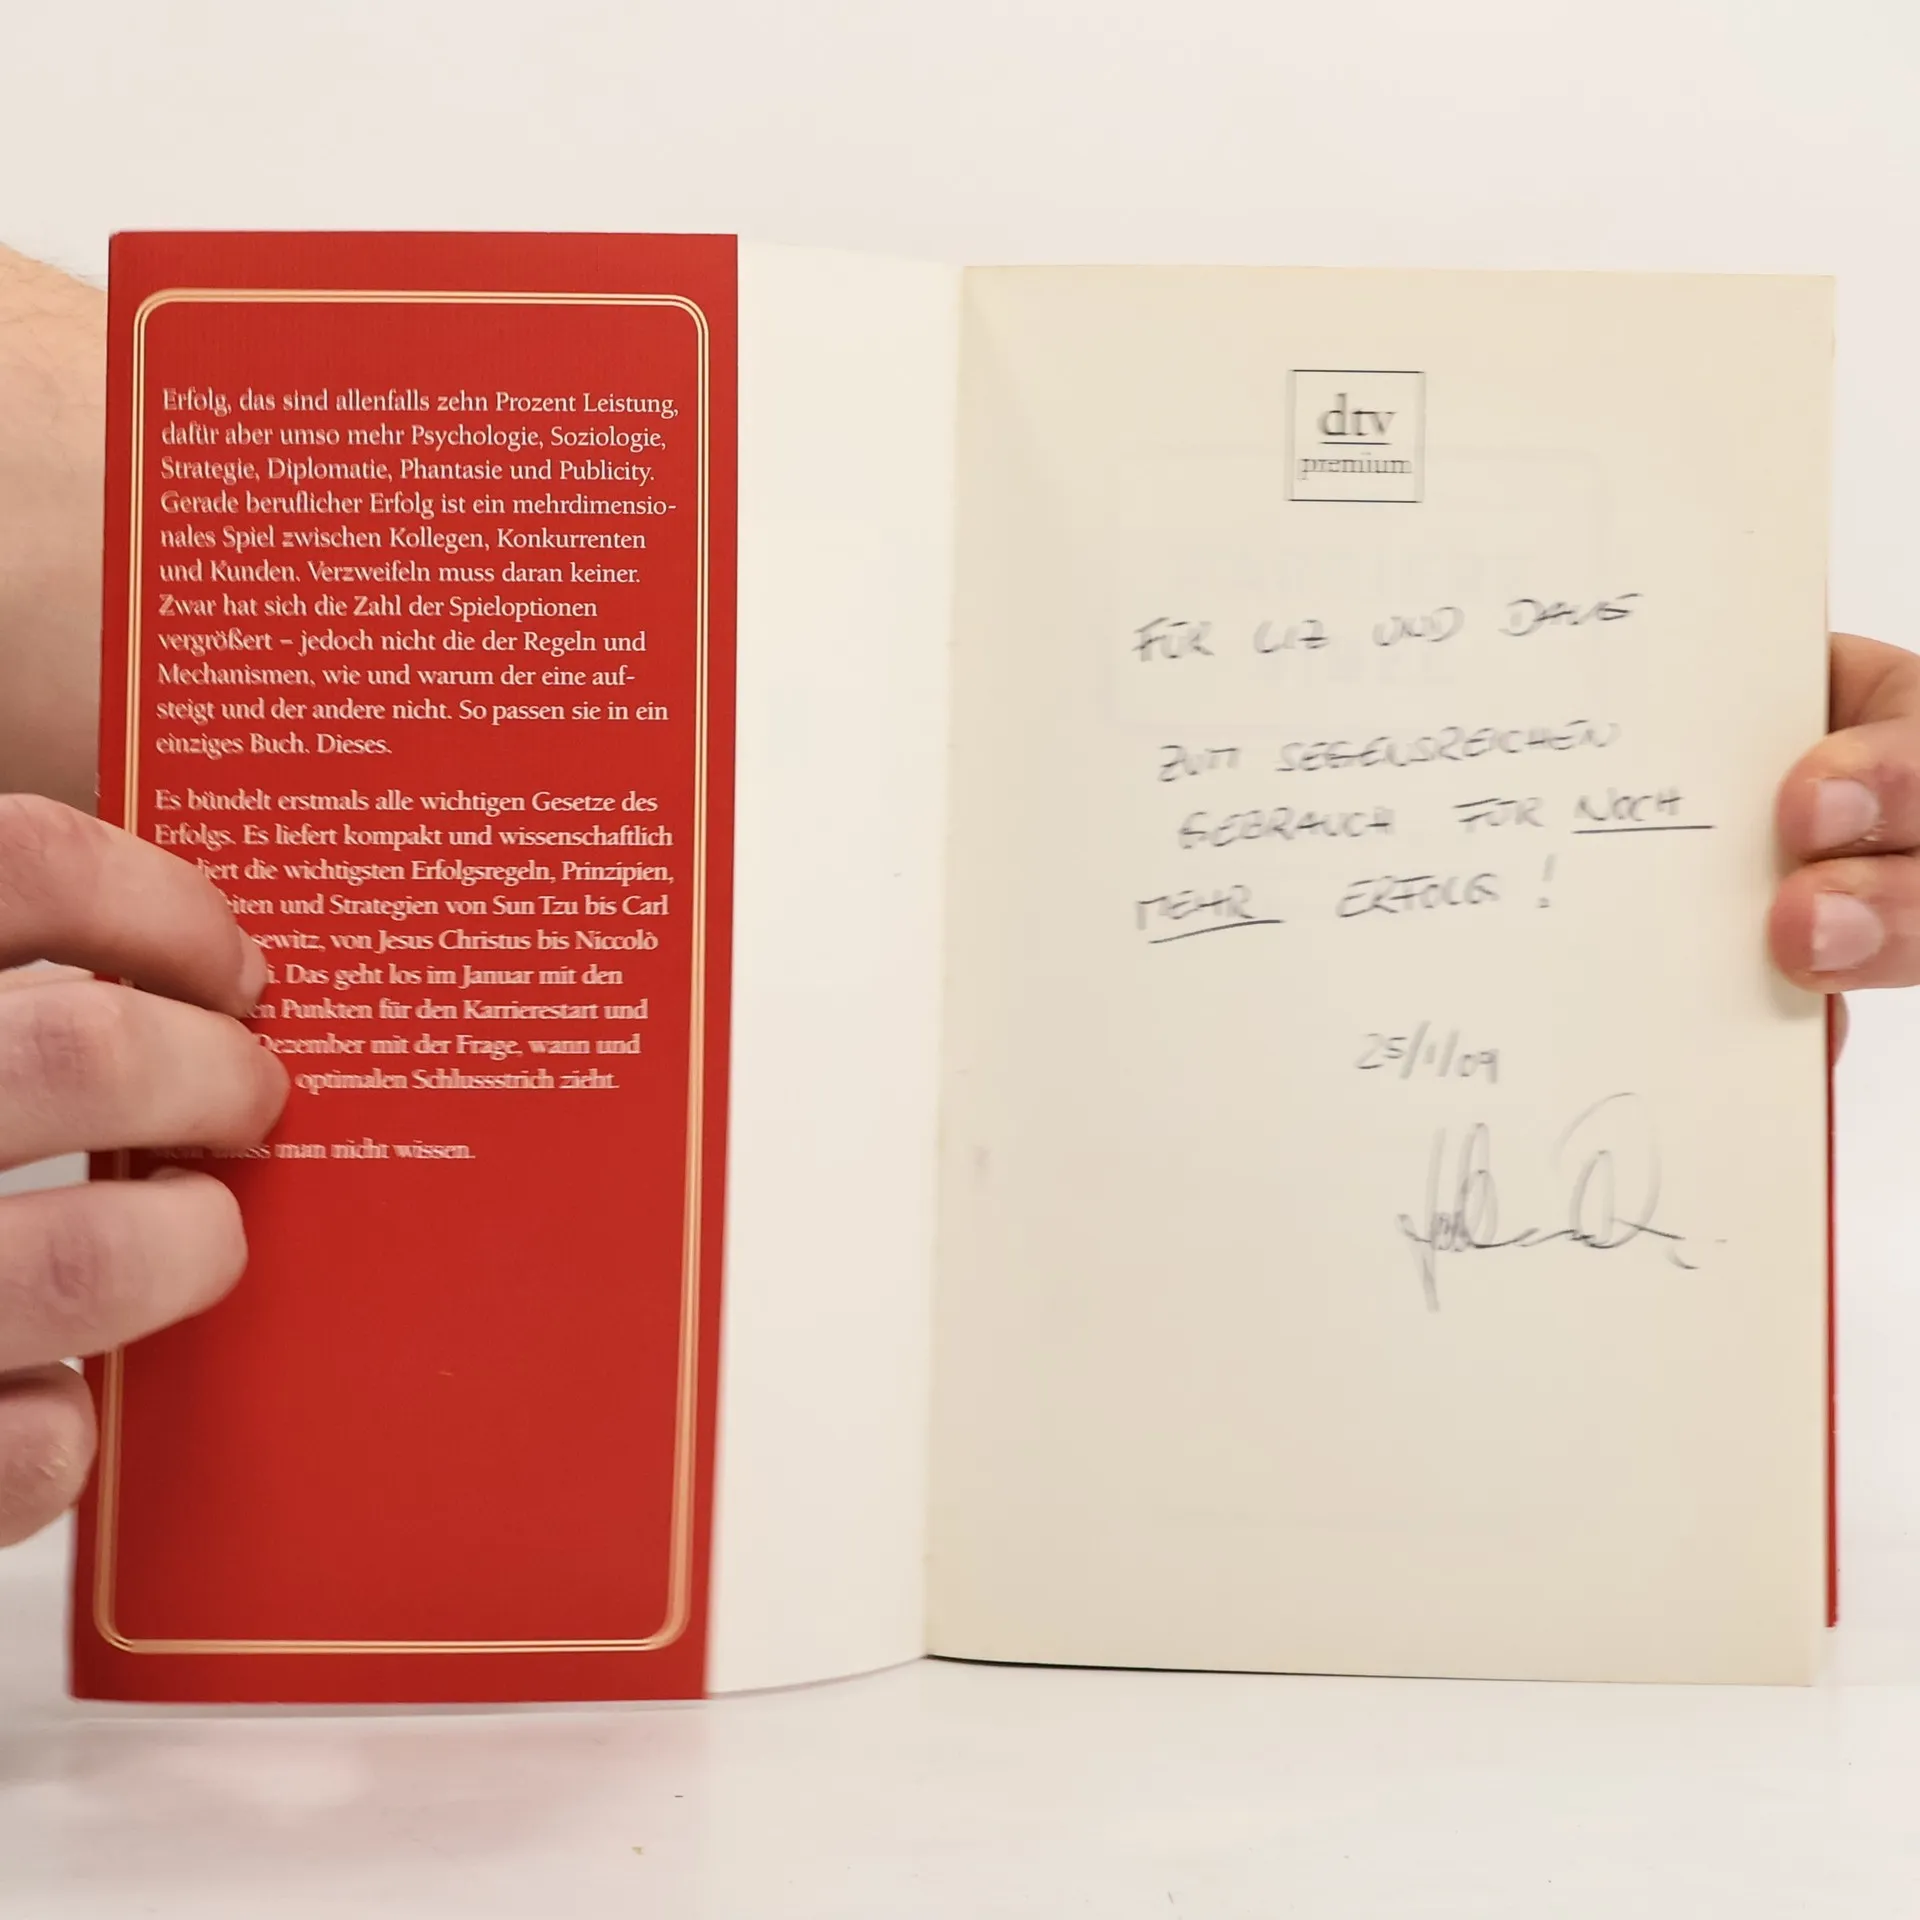 Erfolg, das sind allenfalls zehn Prozent Leistung,
dafür aber umso mehr Psychologie, Soziologie,
Strategie, Diplomatie, Phantasie und Publicity.
Gerade beruflicher Erfolg ist ein mehrdimensio-
nales Spiel zwischen Kollegen, Konkurrenten
und Kunden. Verzweifeln muss daran keiner.
Zwar hat sich die Zahl der Spieloptionen
vergrößert – jedoch nicht die der Regeln und
Mechanismen, wie und warum der eine auf-
steigt und der andere nicht. So passen sie in ein
einziges Buch. Dieses.
Es bündelt erstmals alle wichtigen Gesetze des
Erfolgs. Es liefert kompakt und wissenschaftlich
die wichtigsten Erfolgsregeln, Prinzipien,
und Strategien von Sun Tzu bis Carl
von Jesus Christus bis Niccolò
Das geht los im Januar mit den
Punkten für den Karrierestart und
Dezember mit der Frage, wann und
optimalen Schlussstrich zieht.
man nicht wissen.
dtv
premium
FÜR LIZ UND DAVE
ZUM SEGENSREICHEN
GEBRAUCH FÜR NOCH
MEHR ERFOLG!
25/1/09